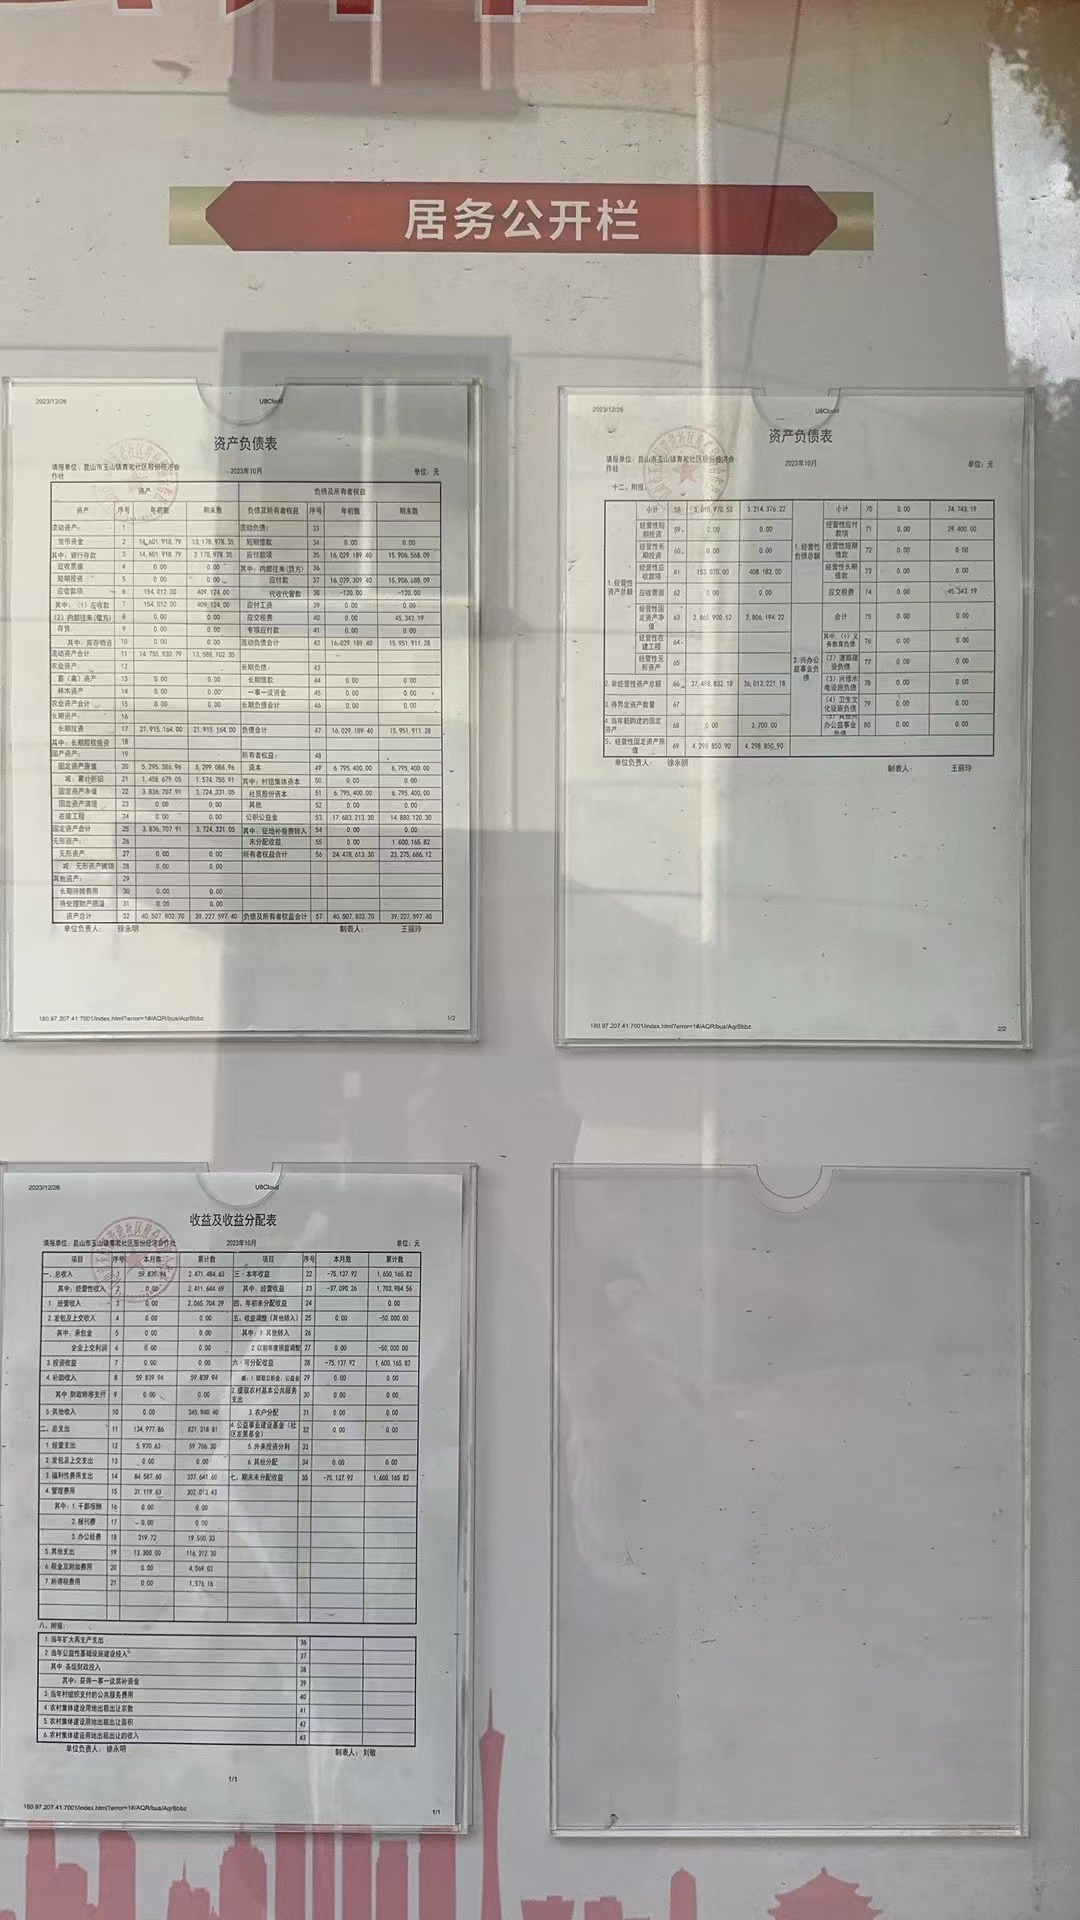 居务公开栏
2023/12/26
U8Cloud
资产负债表
填报单位：昆山市玉山镇青淞社区股份经济合作社
2023年10月
单位：元
资产 负债及所有者权益
资产 序号 年初数 期末数 负债及所有者权益 序号 年初数 期末数
流动资产： 1 流动负债： 33
货币资金 2 14,601,918.79 13,178,978.35 短期借款 34 0.00 0.00
其中：银行存款 3 14,601,918.79 13,178,978.35 应付款项 35 16,029,189.40 15,906,568.09
应收票据 4 0.00 0.00 其中：内部往来(贷方) 36
短期投资 5 0.00 0.00 应付款 37 16,029,309.40 15,906,688.09
应收款项 6 154,012.00 409,124.00 代收代管款 38 -120.00 -120.00
其中：（1）应收款 7 154,012.00 409,124.00 应付工资 39 0.00 0.00
（2）内部往来(借方) 8 0.00 0.00 应交税费 40 0.00 45,343.19
存货 9 0.00 0.00 专项应付款 41 0.00 0.00
其中：库存物资 10 0.00 0.00 流动负债合计 42 16,029,189.40 15,951,911.28
流动资产合计 11 14,755,930.79 13,588,102.35
农业资产： 12 长期负债： 43
畜（禽）资产 13 0.00 0.00 长期借款 44 0.00 0.00
林木资产 14 0.00 0.00 一事一议资金 45 0.00 0.00
农业资产合计 15 0.00 0.00 长期负债合计 46 0.00 0.00
长期资产： 16
长期投资 17 21,915,164.00 21,915,164.00 负债合计 47 16,029,189.40 15,951,911.28
其中：长期股权投资 18
固定资产： 19 所有者权益： 48
固定资产原值 20 5,295,386.96 5,299,086.96 资本 49 6,795,400.00 6,795,400.00
减：累计折旧 21 1,458,679.05 1,574,755.91 其中：村组集体资本 50 0.00 0.00
固定资产净值 22 3,836,707.91 3,724,331.05 社员股份资本 51 6,795,400.00 6,795,400.00
固定资产清理 23 0.00 0.00 其他 52 0.00 0.00
在建工程 24 0.00 0.00 公积公益金 53 17,683,213.30 14,880,120.30
固定资产合计 25 3,836,707.91 3,724,331.05 其中：征地补偿费转入 54 0.00 0.00
无形资产： 26 未分配收益 55 0.00 1,600,165.82
无形资产 27 0.00 0.00 所有者权益合计 56 24,478,613.30 23,275,686.12
减：无形资产摊销 28 0.00 0.00
其他资产： 29
长期待摊费用 30 0.00 0.00
待处理财产损溢 31 0.00 0.00
资产总计 32 40,507,802.70 39,227,597.40 负债及所有者权益合计 57 40,507,802.70 39,227,597.40
单位负责人： 徐永明 制表人： 王丽玲
180.97.207.41:7001/index.html?error=1#/AQR/bus/AqrBbbz
1/2
2023/12/26
U8Cloud
资产负债表
填报单位：昆山市玉山镇青淞社区股份经济合作社
2023年10月
单位：元
十二、附报：
1.经营性资产总额 小计 58 3,214,376.22 1.经营性负债总额 小计 70 0.00 74,743.19
经营性短期投资 59 0.00 0.00 经营性应付款项 71 0.00 29,400.00
经营性长期投资 60 0.00 0.00 经营性短期借款 72 0.00 0.00
经营性应收款项 61 153,070.00 408,182.00 经营性长期借款 73 0.00 0.00
应收票据 62 0.00 0.00 应交税费 74 0.00 45,343.19
经营性固定资产净值 63 2,865,900.52 2,806,194.22 2.兴办公益事业负债 合计 75 0.00 0.00
经营性在建工程 64 其中：（1）义务教育负债 76 0.00 0.00
经营性无形资产 65 （2）道路建设负债 77 0.00 0.00
2.非经营性资产总额 66 37,498,832.18 36,013,221.18 （3）兴修水电设施负债 78 0.00 0.00
3.待界定资产数量 67 （4）卫生文化设施负债 79 0.00 0.00
4.当年新购建的固定资产 68 0.00 3,700.00 （5）其他兴办公益事业负债 80 0.00 0.00
5、经营性固定资产原值 69 4,298,850.90 4,298,850.90
单位负责人： 徐永明
制表人： 王丽玲
180.97.207.41:7001/index.html?error=1#/AQR/bus/AqrBbbz
2/2
2023/12/26
U8Cloud
收益及收益分配表
填报单位：昆山市玉山镇青淞社区股份经济合作社 2023年10月 单位：元
项目 序号 本月数 累计数 项目 序号 本月数 累计数
一、总收入 1 59,839.94 2,471,484.63 三、本年收益 22 -75,137.92 1,650,165.82
其中：经营性收入 2 0.00 2,411,644.69 其中：经营收益 23 -37,090.26 1,703,984.56
1.经营收入 3 0.00 2,065,704.29 四、年初未分配收益 24 0.00
2.发包及上交收入 4 0.00 0.00 五、收益调整（其他转入） 25 0.00 -50,000.00
其中：承包金 5 0.00 0.00 其中：1.其他转入 26
企业上交利润 6 0.00 0.00 2.以前年度损益调整 27 0.00 -50,000.00
3.投资收益 7 0.00 0.00 六、可分配收益 28 -75,137.92 1,600,165.82
4.补助收入 8 59,839.94 59,839.94 减：1.提取公积金、公益金 29 0.00 0.00
其中:财政转移支付 9 0.00 0.00 2.提取农村基本公共服务支出 30 0.00 0.00
5.其他收入 10 0.00 345,940.40 3.农户分配 31 0.00 0.00
二、总支出 11 134,977.86 821,318.81 4.公益事业建设基金（社区发展基金） 32 0.00 0.00
1.经营支出 12 5,970.63 59,706.30 5.外来投资分利 33
2.发包及上交支出 13 0.00 0.00 6.其他分配 34 0.00 0.00
3.福利性费用支出 14 84,587.60 337,641.60 七、期末未分配收益 35 -75,137.92 1,600,165.82
4.管理费用 15 31,119.63 302,013.43
其中：1.干部报酬 16 0.00 0.00
2.报刊费 17 0.00 0.00
3.办公经费 18 319.72 19,500.33
5.其他支出 19 13,300.00 116,312.30
6.税金及附加费用 20 0.00 4,069.02
7.所得税费用 21 0.00 1,576.16
八、附报：
1.当年扩大再生产支出 36
2.当年公益性基础设施建设投入 37
其中:各级财政投入 38
其中：获得一事一议奖补资金 39
3.当年村组织支付的公共服务费用 40
4.农村集体建设用地出租出让宗数 41
5.农村集体建设用地出租出让面积 42
6.农村集体建设用地出租出让的收入 43
单位负责人：徐永明 制表人： 刘敏
1/1
180.97.207.41:7001/index.html?error=1#/AQR/bus/AqrBbbz
1/1